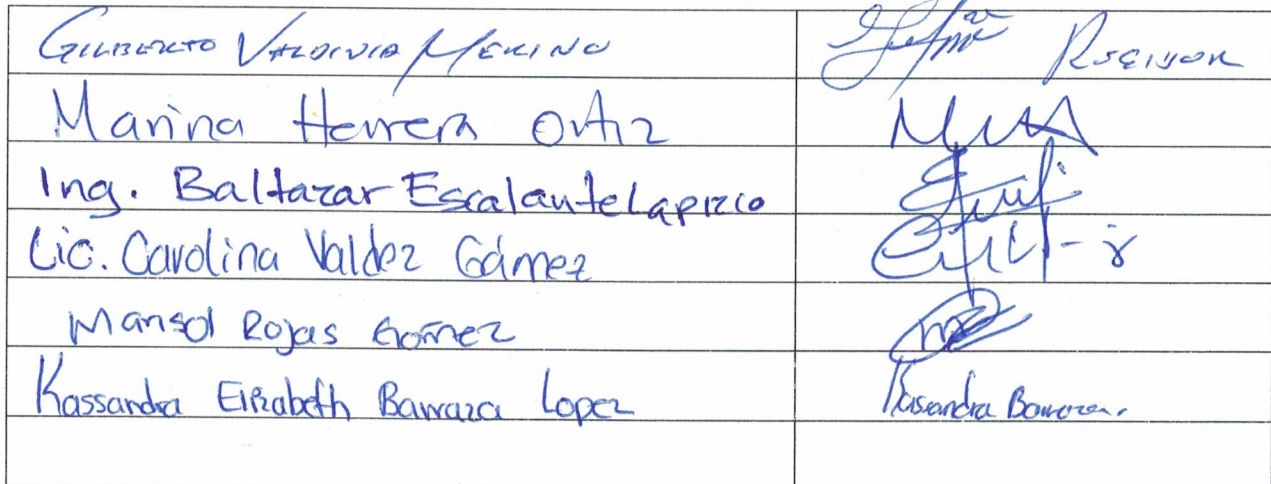 GILBERTO VALDIVIA MERINO
Marina Herrera Ortiz
Ing. Baltazar Escalante Laprzco
Lic. Carolina Valdez Gámez
Marisol Rojas Gómez
Kassandra Elizabeth Barraza Lopez Kassandra Barraza.